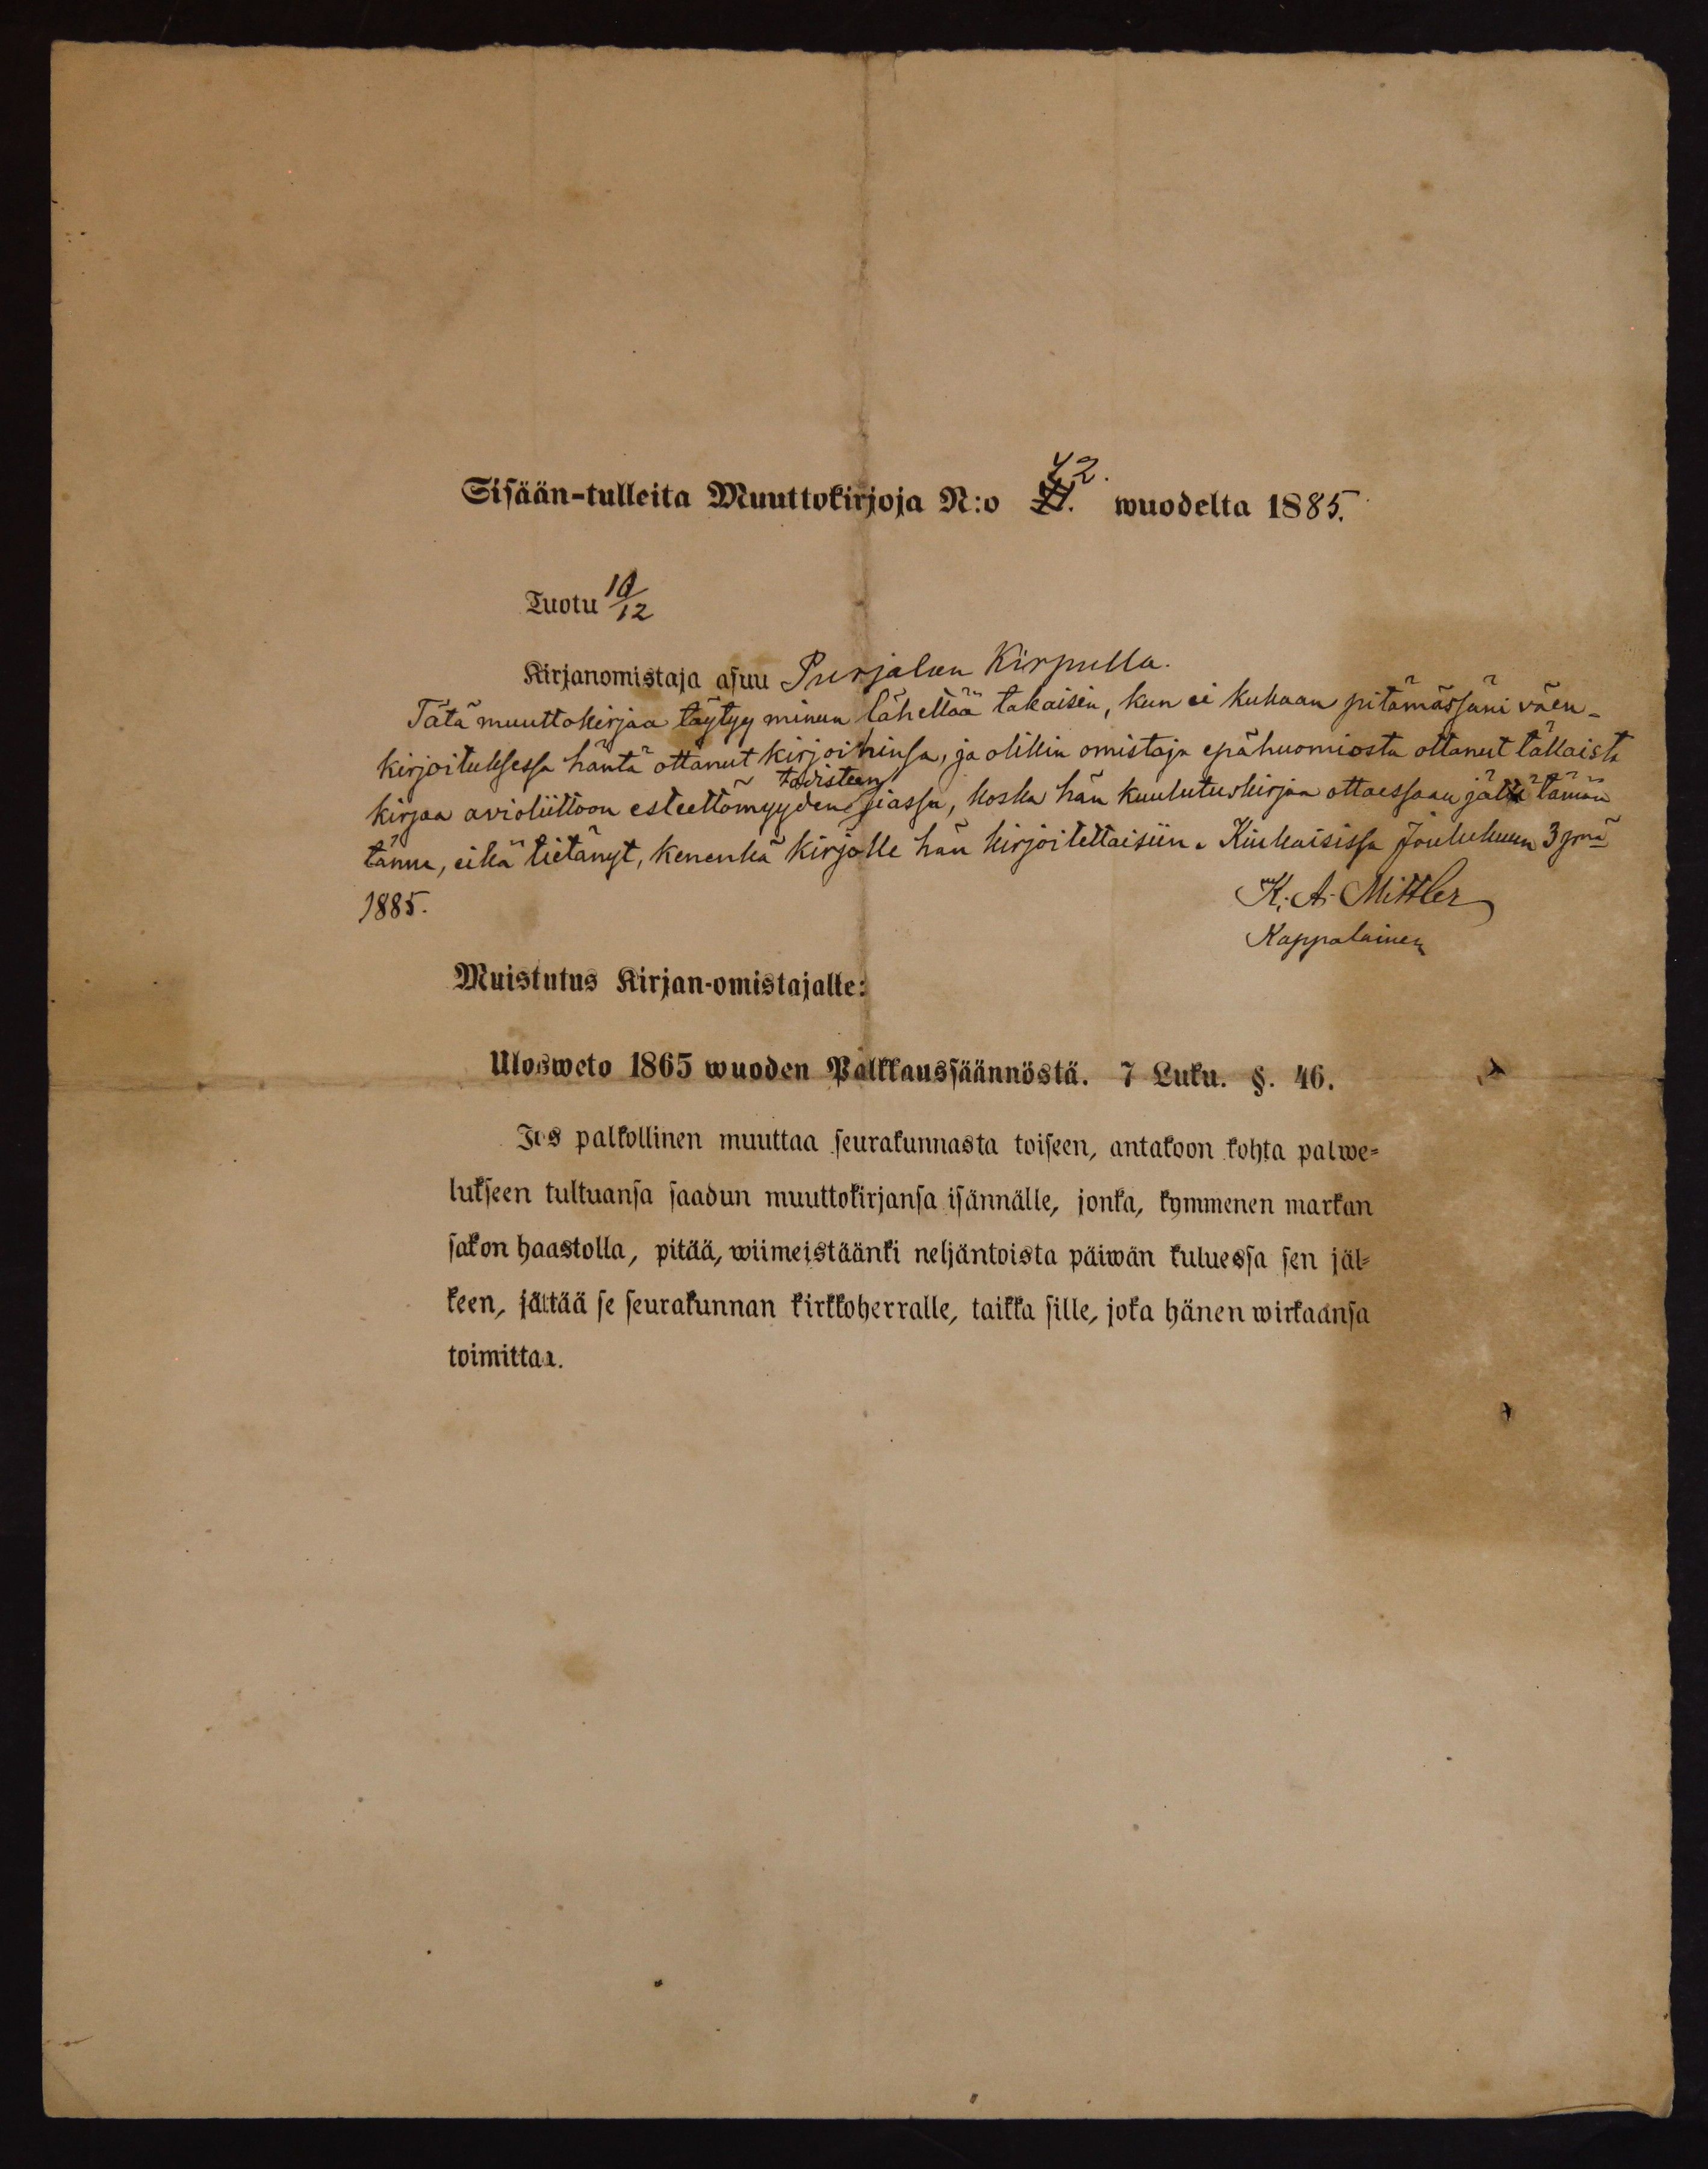 Sisään-tulleita Muuttokirjoja N:o 42. wuodelta 1885.
Tuotu 10/12
Kirjanomistaja asuu Purjalan Kirpulla.
Tätä muuttokirjaa täytyy minun lähettää takaisin, kun ei kukaan pitämässäni väen-
kirjoituksessa häntä ottanut kirjoihinsa, ja olikin omistaja epähuomiosta ottanut tällaista
kirjaa avioliittoon esteettömyyden todisteen siassa, koska hän kuulutuskirjaa ottaessaan jätti tämän
tänne, eikä tietänyt, kenenkä kirjolle hän kirjoitettaisiin. Kiukaisissa Joulukuun 3 pnä
1885.
K. A. Mittler
Kappalainen
Muistutus Kirjan-omistajalle:
Ulosweto 1865 wuoden Palkkaussäännöstä. 7 Luku. §. 46.
Jos palkollinen muuttaa seurakunnasta toiseen, antakoon kohta palwe-
lukseen tultuansa saadun muuttokirjansa isännälle, jonka, kymmenen markan
sakon haastolla, pitää, wiimeistäänki neljäntoista päiwän kuluessa sen jäl-
keen, jättää se seurakunnan kirkkoherralle, taikka sille, joka hänen wirkaansa
toimittaa.